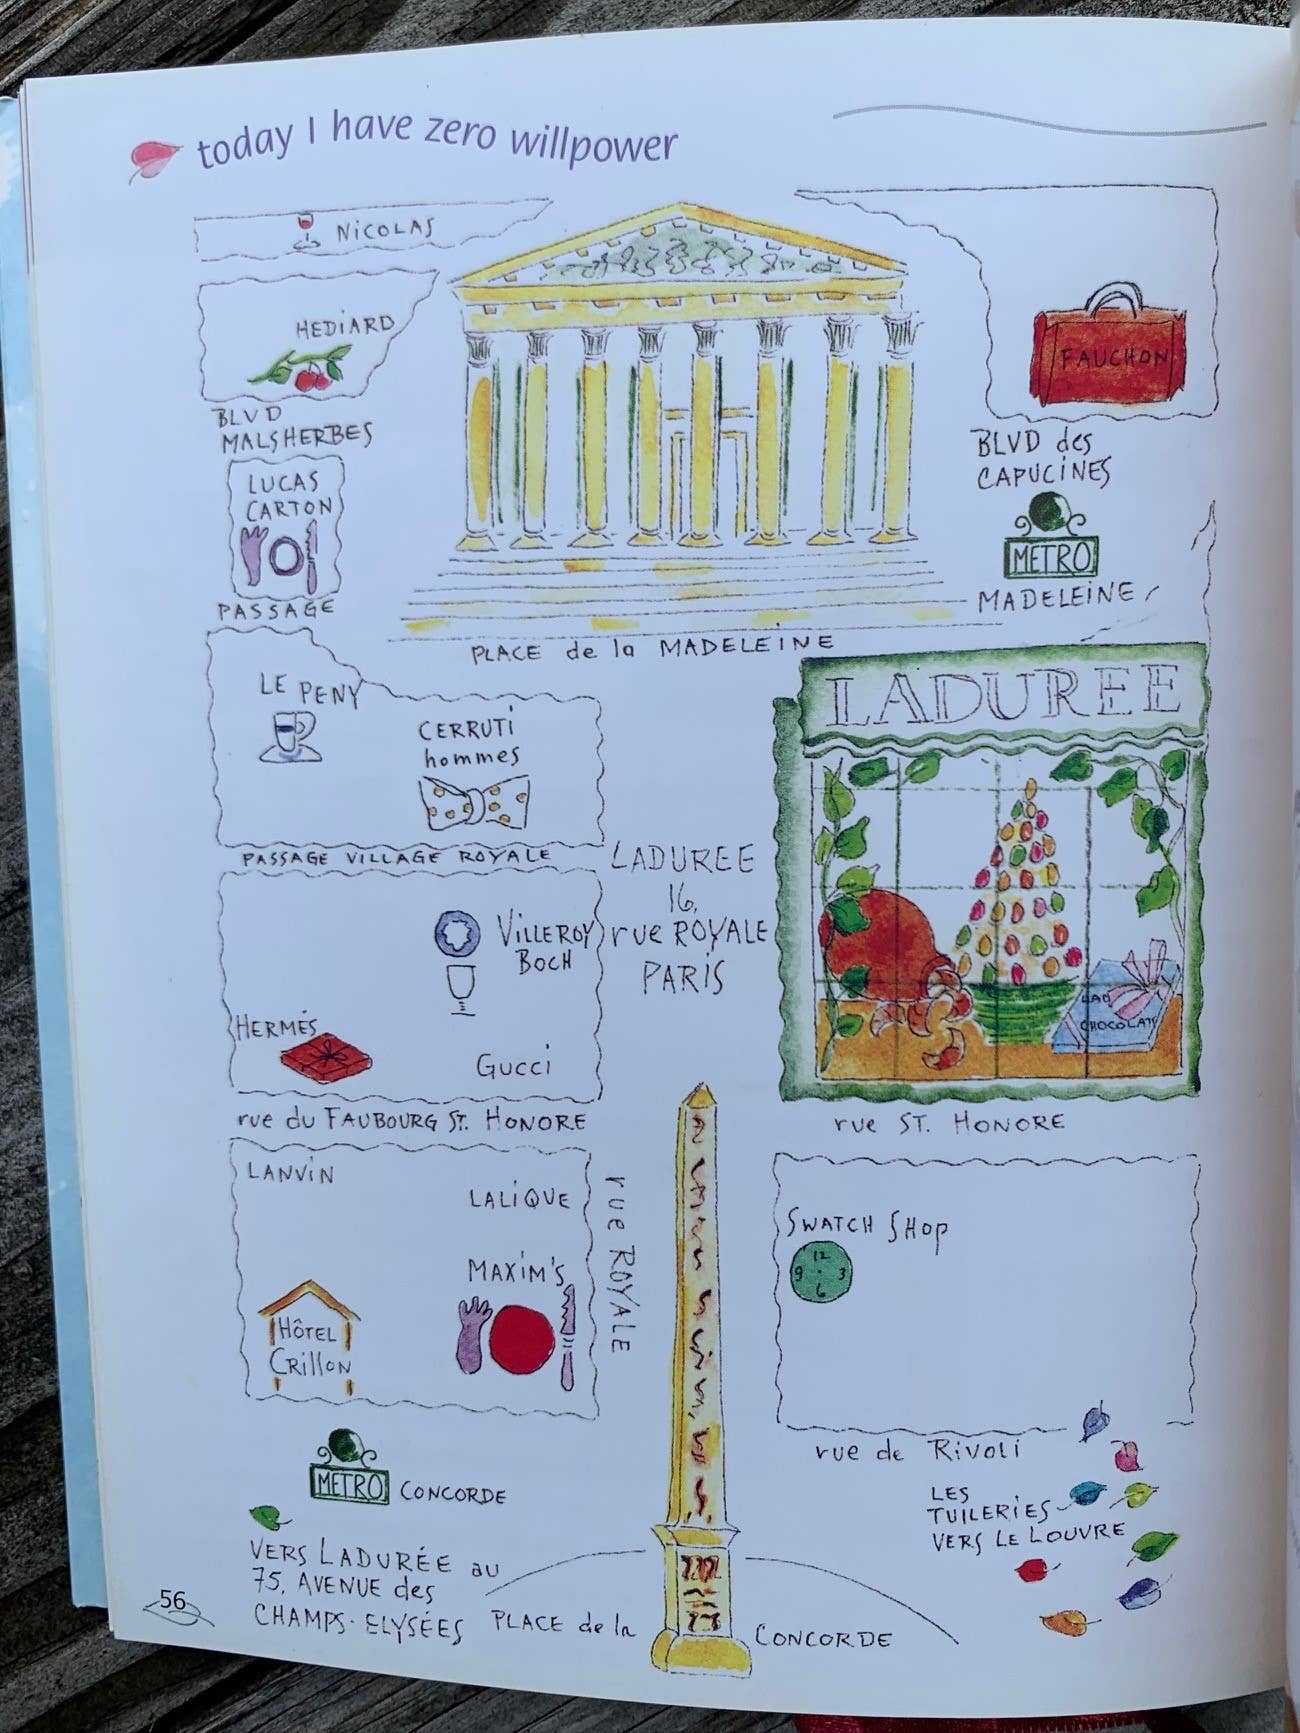 today I have zero willpower
NICOLAS
HEDIARD
FAUCHON
BLVD
MALSHERBES
BLVD des
CAPUCINES
LUCAS
CARTON
METRO
MADELEINE
PASSAGE
PLACE de la MADELEINE
LADUREE
LE PENY
CERRUTI
hommes
PASSAGE VILLAGE ROYALE
LADUREE
16,
rue ROYALE
PARIS
VILLEROY
BOCH
LAD
CHOCOLATS
HERMÉS
GUCCI
rue du FAUBOURG ST. HONORE
rue ST. HONORE
LANVIN
LALIQUE
rue ROYALE
SWATCH SHOP
12
9 3
6
MAXIM'S
HÔTEL
CRILLON
rue de RIVOLI
METRO CONCORDE
LES
TUILERIES
VERS LE LOUVRE
VERS LADURÉE au
75, AVENUE des
CHAMPS-ELYSÉES
PLACE de la CONCORDE
56